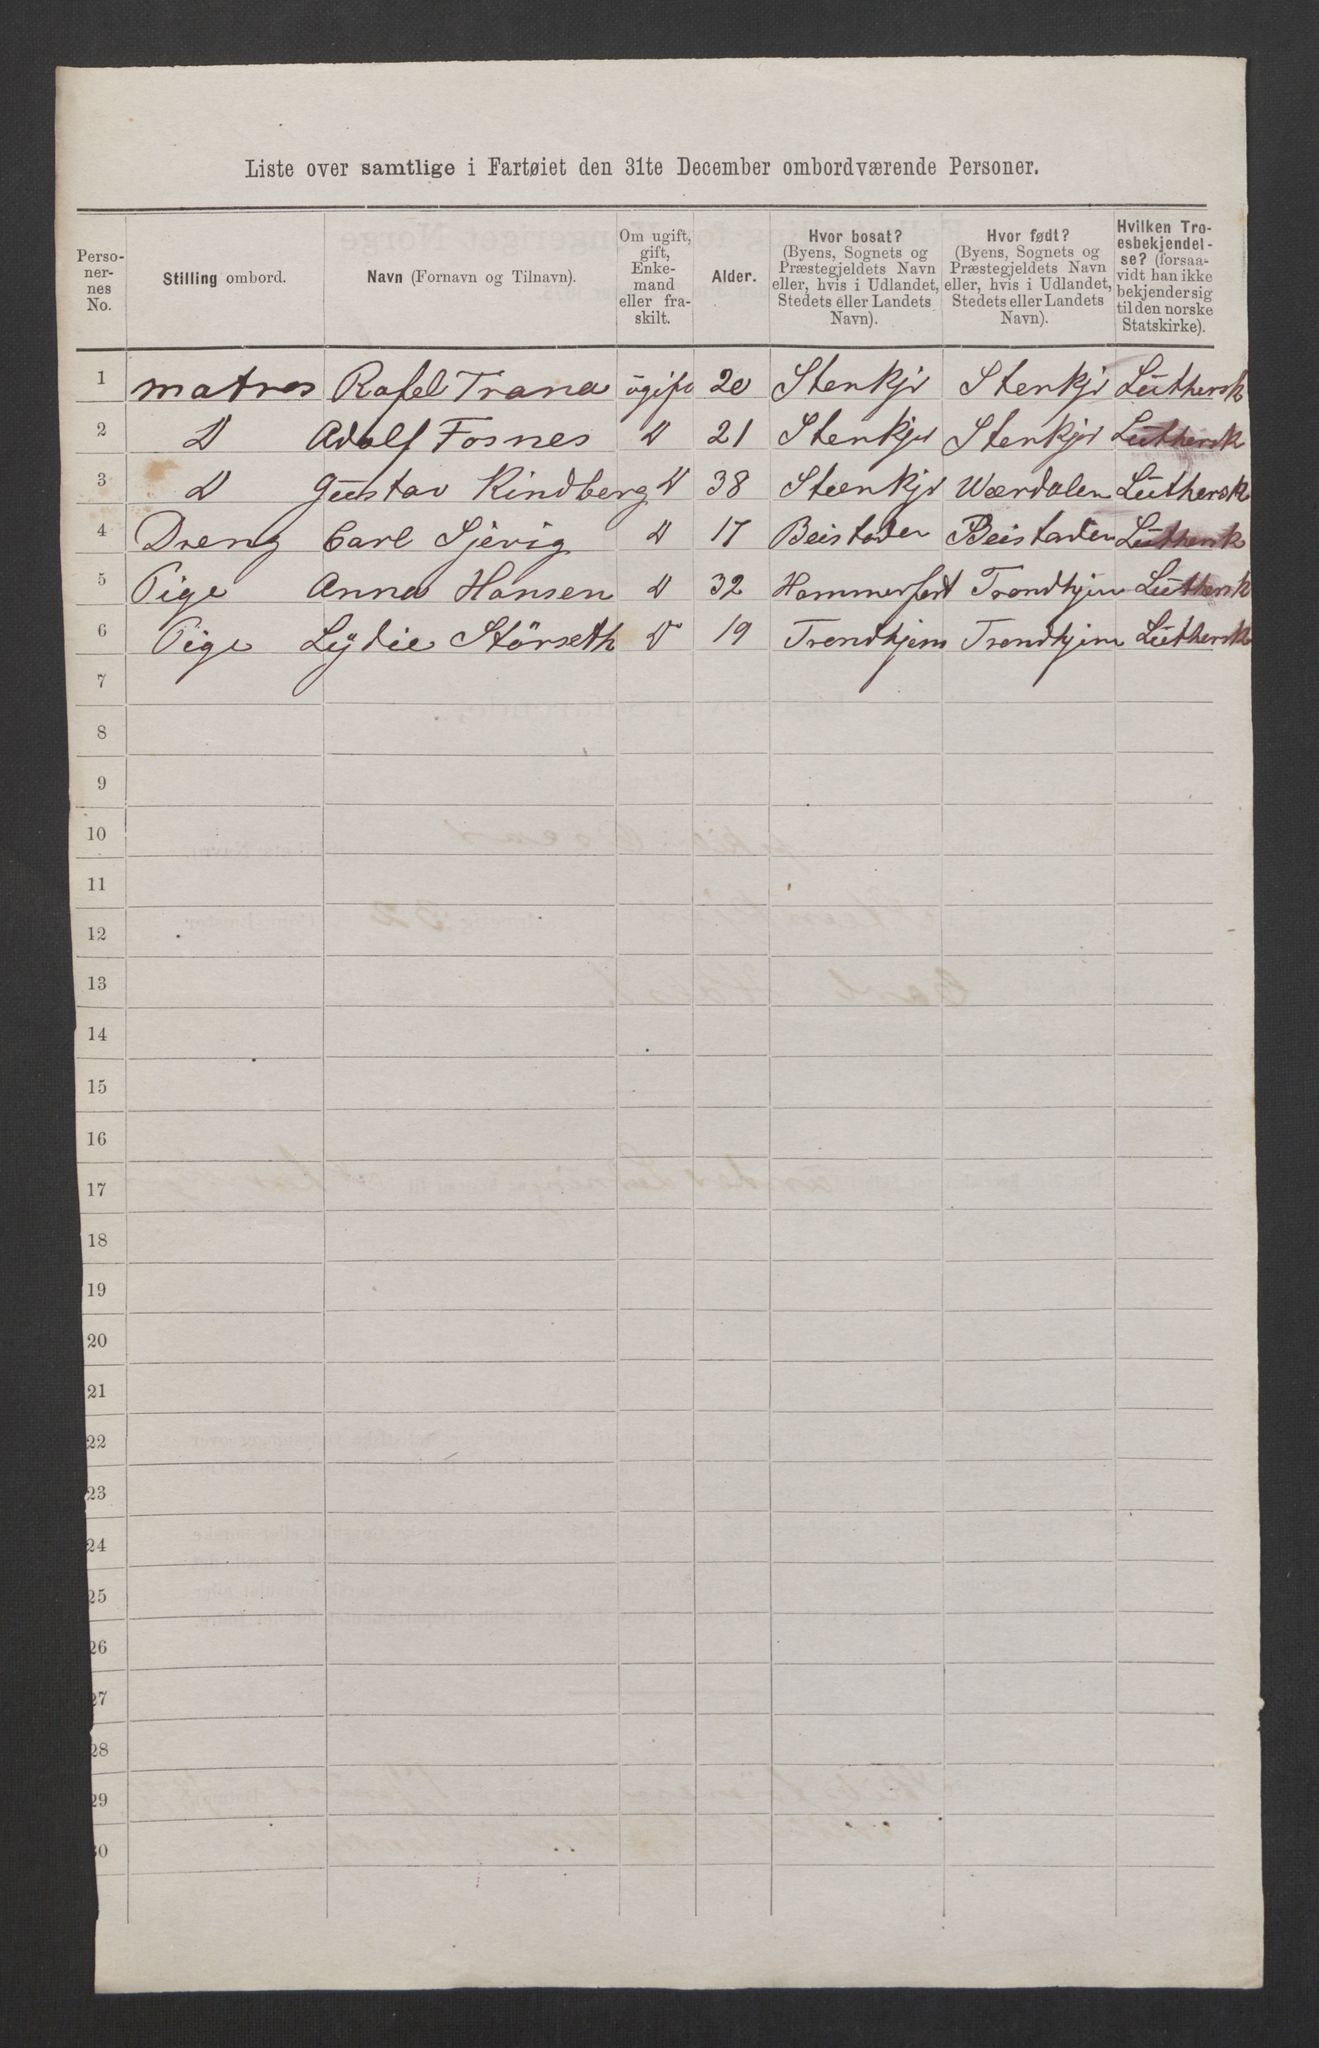 Liste over samtlige i Fartøiet den 31te December ombordværende Personer.
Perso-
ner-
nes
No.
Stilling ombord.
Navn (Fornavn og Tilnavn).
Om ugift,
gift,
Enke-
mand
eller fra-
skilt.
Alder.
Hvor bosat?
(Byens, Sognets og
Præstegjeldets Navn
eller, hvis i Udlandet,
Stedets eller Landets
Navn).
Hvor født?
(Byens, Sognets og
Præstegjeldets Navn
eller, hvis i Udlandet,
Stedets eller Landets
Navn).
Hvilken Tro-
esbekjendel-
se? (forsaa-
vidt han ikke
bekjender sig
til den norske
Statskirke).
1 matros Rafel Trana ugift 20 Stenkjr Stenkjr Luthersk
2 D Adolf Fosnes D 21 Stenkjr Stenkjr Luthersk
3 D Gustav Rindberg D 38 Steenkjr Wærdalen Luthersk
4 Dreng Carl Sjevig D 17 Beistaden Beistaden Luthersk
5 Pige Anna Hansen D 32 Hammerfest Trondhjem Luthersk
6 Pige Lydie Störseth D 19 Trondhjem Trondhjem Luthersk
7
8
9
10
11
12
13
14
15
16
17
18
19
20
21
22
23
24
25
26
27
28
29
30